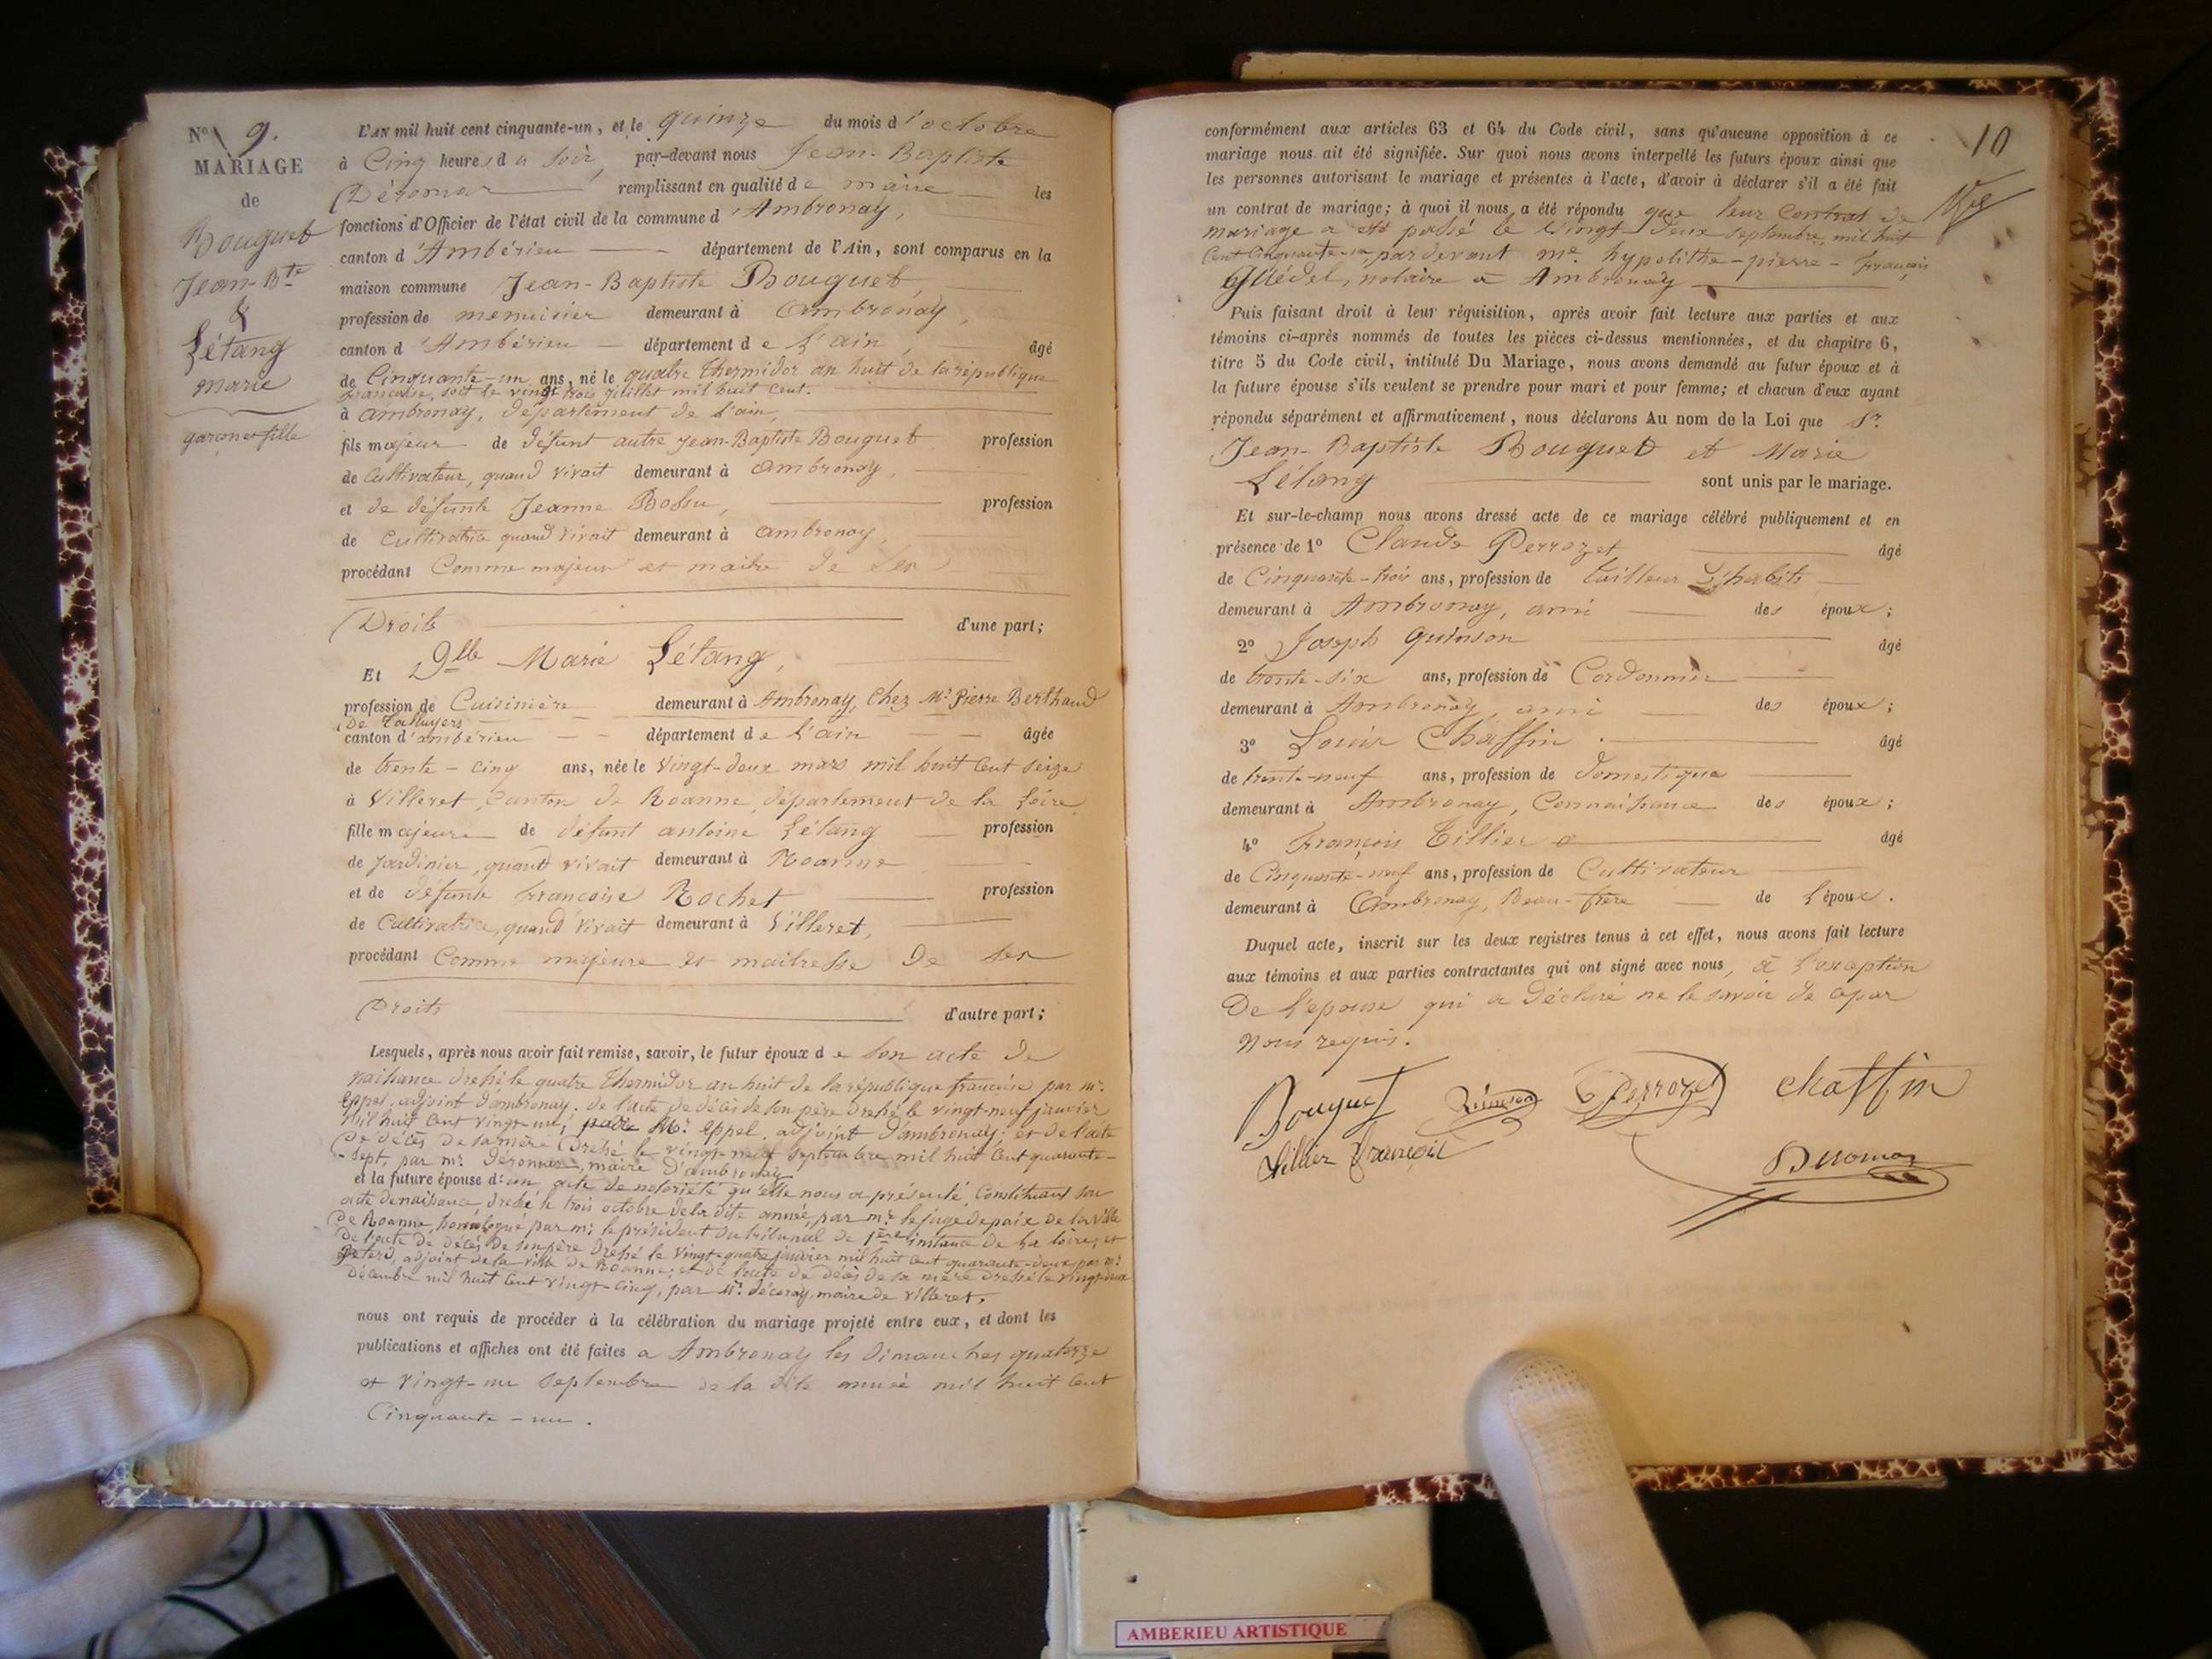 N° 9.
MARIAGE
de
Bouguet
Jean-Bte
&
Létang
marie
garçon et fille
L'AN mil huit cent cinquante-un, et le quinze du mois d'octobre
à Cinq heures du soir, par-devant nous Jean-Baptiste
Déromas remplissant en qualité de maire les
fonctions d'Officier de l'état civil de la commune d'Ambronay,
canton d'Ambérieu département de l'Ain, sont comparus en la
maison commune Jean-Baptiste Bouguet,
profession de menuisier demeurant à Ambronay,
canton d'Ambérieu département de l'ain, âgé
de Cinquante-un ans, né le quatre thermidor an huit de la république
française, soit le vingt trois juillet mil huit cent.
à ambronay, département de l'ain,
fils majeur de défunt autre Jean-Baptiste Bouguet profession
de Cultivateur, quand vivait demeurant à Ambronay,
et de défunte Jeanne Bossu, profession
de Cultivatrice quand vivait demeurant à ambronay,
procédant Comme majeur et maitre de ses
Droits d'une part;
Et Dlle Marie Létang,
profession de Cuisinière demeurant à Ambronay, Chez Mr Pierre Berthaud
de
canton d'ambérieu département de l'ain âgée
de trente-cinq ans, née le vingt-deux mars mil huit cent seize
à Villeret, Canton de Roanne, département de la Loire
fille majeure de défunt antoine Létang profession
de Jardinier, quand vivait demeurant à Roanne
et de défunte françoise Rochet profession
de Cultivatrice, quand vivait demeurant à Villeret,
procédant Comme majeure et maitresse de ses
Droits d'autre part;
Lesquels, après nous avoir fait remise, savoir, le futur époux de son acte de
naissance dressé le quatre thermidor an huit de la république française par mr.
Eppel, adjoint d'ambronay. de l'acte de décès de son père dressé le vingt-neuf janvier
mil huit cent vingt-un, par Mr. Eppel, adjoint d'ambronay; et de l'acte
de décès de sa mère dressé le vingt-neuf septembre mil huit cent quarante-
-sept, par mr. Déromas, maire d'ambronay
et la future épouse d'un acte de notoriété qu'elle nous a présenté, Constituant son
acte de naissance, dressé le trois octobre de la dite année, par mr. le juge de paix de la ville
de Roanne, homologué par mr. le président du tribunal de 1ère instance de la loire; et
de l'acte de décès de son père dressé le vingt-quatre janvier mil huit cent quarante-deux par mr.
adjoint de la ville de Roanne; et de l'acte de décès de sa mère dressé le vingt-deux
décembre mil huit cent vingt-cinq, par Mr. maire de Villeret,
nous ont requis de procéder à la célébration du mariage projeté entre eux, et dont les
publications et affiches ont été faites a Ambronay les dimanches quatorze
et vingt-un septembre de la dite année mil huit cent
Cinquante-un.
10
conformément aux articles 63 et 64 du Code civil, sans qu'aucune opposition à ce
mariage nous ait été signifiée. Sur quoi nous avons interpellé les futurs époux ainsi que
les personnes autorisant le mariage et présentes à l'acte, d'avoir à déclarer s'il a été fait
un contrat de mariage; à quoi il nous a été répondu que leur Contrat de
mariage a été passé le vingt deux septembre, mil huit
Cent Cinquante-un pardevant me. hypolithe-pierre-françois
notaire a Ambronay
Puis faisant droit à leur réquisition, après avoir fait lecture aux parties et aux
témoins ci-après nommés de toutes les pièces ci-dessus mentionnées, et du chapitre 6,
titre 5 du Code civil, intitulé Du Mariage, nous avons demandé au futur époux et à
la future épouse s'ils veulent se prendre pour mari et pour femme; et chacun d'eux ayant
répondu séparément et affirmativement, nous déclarons Au nom de la Loi que Sr.
Jean-Baptiste Bouguet et Marie
Létang sont unis par le mariage.
Et sur-le-champ nous avons dressé acte de ce mariage célébré publiquement et en
présence de 1° Claude Perrozet âgé
de Cinquante-trois ans, profession de tailleur d'habits
demeurant à Ambronay, ami des époux;
2° Joseph Quinson âgé
de trente-six ans, profession de Cordonnier
demeurant à Ambronay, ami des époux;
3° Louis Chaffin. âgé
de trente-neuf ans, profession de domestique
demeurant à Ambronay, Connaissance des époux;
4° François Tillier âgé
de Cinquante-neuf ans, profession de Cultivateur
demeurant à Ambronay, Beau-frère de l'époux.
Duquel acte, inscrit sur les deux registres tenus à cet effet, nous avons fait lecture
aux témoins et aux parties contractantes qui ont signé avec nous, à l'exception
De l'epouse qui a déclaré ne le savoir de ce par
nous requis.
Bouguet Quinson C Perrozet chaffin
Tillier François Deromas
AMBERIEU ARTISTIQUE